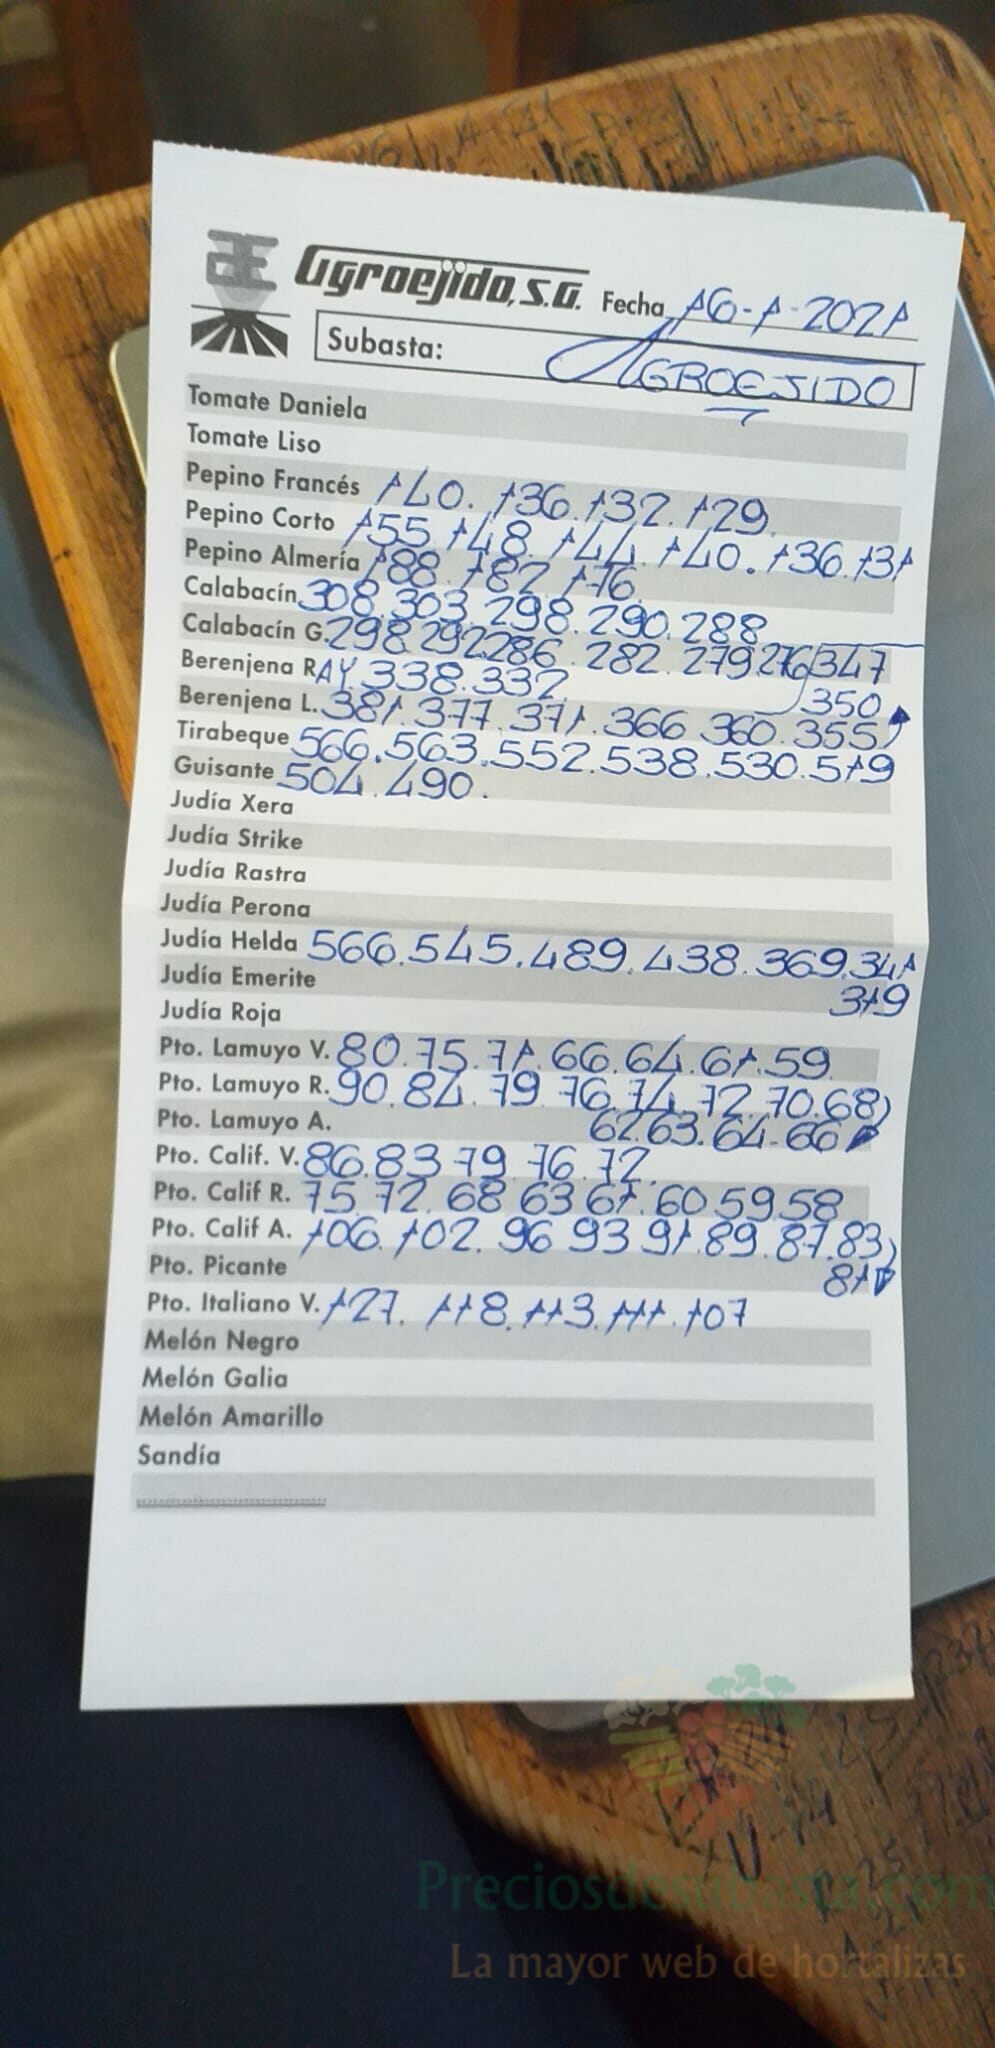 Agroejido, S.A. Fecha 16-1-2021
Subasta: AGROEJIDO
Tomate Daniela
Tomate Liso
Pepino Francés 140. 136. 132. 129.
Pepino Corto 155. 148. 144. 140. 136. 131
Pepino Almería 188. 182. 176.
Calabacín 308. 303. 298. 290. 288
Calabacín G. 298. 292. 286. 282. 279 276
Berenjena RAY. 338. 332. 350 347
Berenjena L. 381. 377. 371. 366 360. 355
Tirabeque 566. 563. 552. 538. 530. 519
Guisante 504. 490.
Judía Xera
Judía Strike
Judía Rastra
Judía Perona
Judía Helda 566. 545. 489. 438. 369. 341
319
Judía Emerite
Judía Roja
Pto. Lamuyo V. 80. 75. 71. 66. 64. 61. 59
Pto. Lamuyo R. 90. 84. 79. 76. 74. 72. 70. 68
62. 63. 64. 66
Pto. Lamuyo A.
Pto. Calif. V. 86. 83 79. 76. 72.
Pto. Calif R. 75. 72. 68 63 61. 60 59. 58
Pto. Calif A. 106. 102. 96 93 91. 89. 87. 83
81
Pto. Picante
Pto. Italiano V. 127. 118. 113. 111. 107
Melón Negro
Melón Galia
Melón Amarillo
Sandía
Preciosdesubasta.com
La mayor web de hortalizas